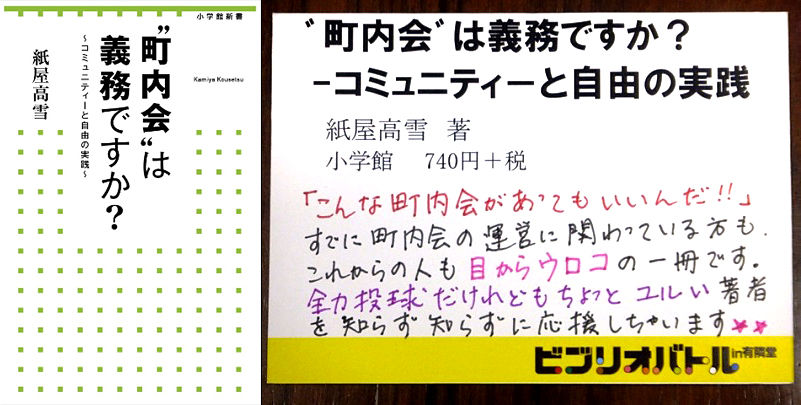 小学館新書
〝町内会〟は
義務ですか?
~コミュニティーと自由の実践~
Kamiya Kousetsu
紙屋高雪
〝町内会〟は義務ですか?
-コミュニティーと自由の実践
紙屋高雪 著
小学館 740円+税
「こんな町内会があってもいいんだ!!」
すでに町内会の運営に関わっている方も、
これからの人も目からウロコの一冊です。
全力投球だけれどもちょっとユルい著者
を知らず知らずに応援しちゃいます★★
ビブリオバトルin有隣堂